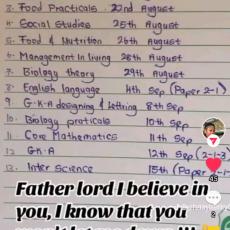 3. Food Practicals. 22nd August
4. Social Studies 25th August
5. Food & Nutrition 26th August
6. Management In living 28th August
7. Biology theory 29th August
8. English language 4th Sep (Paper 2-1)
9. G.K.A designing & lettering 8th Sep
10. Biology praticals 10th Sep
11. Core Mathematics 11th Sep
12. GKA 12th Sep (2-1-3)
13. Inter Science 15th (Paper
45
2
Father lord I believe in
you, I know that you